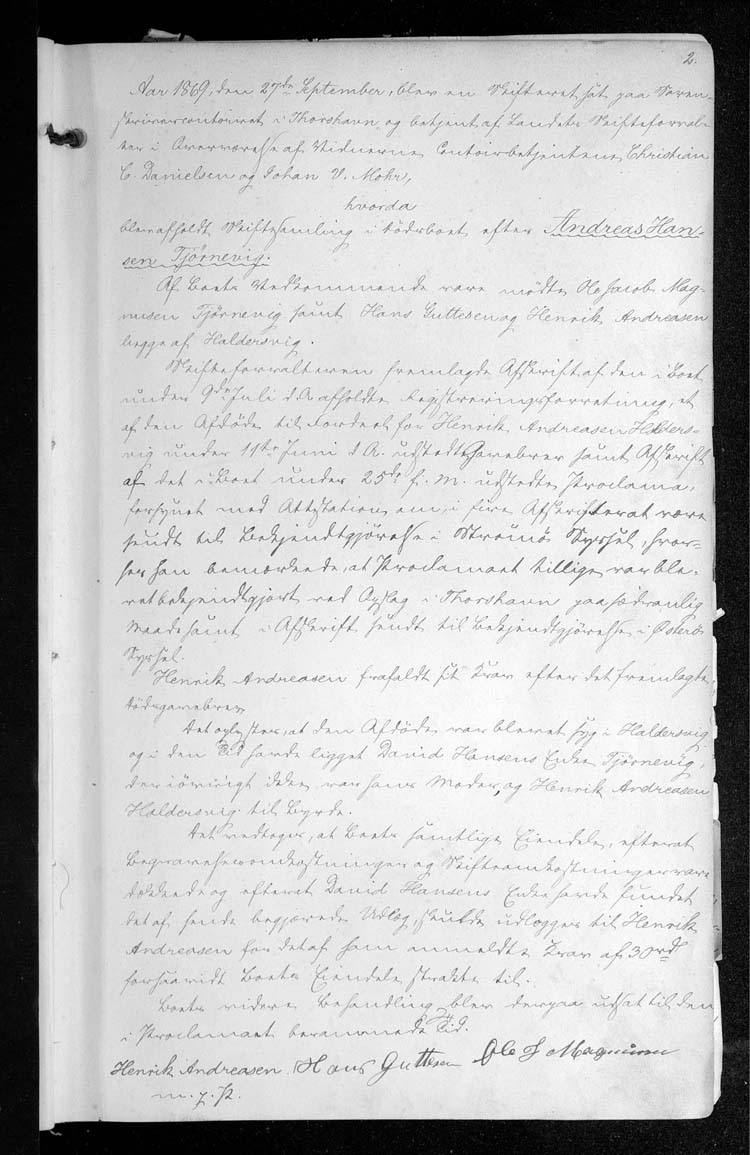 2.
Aar 1869, den 27de September, blev en Skifteret sat paa Soren-
skrivercontoiret i Thorshavn og betjent af Landets Skifteforval-
ter i Overværelse af Vidnerne Contoirbetjentene Christian
C. Danielsen og Johan V. Mohr,
hvorda
blev afholdt Skiftesamling i Dødsboet efter Andreas Han-
sen Tjørnevig.
Af Boets Vedkommende vare mødte Ole Jacob Mag-
nusen Tjørnevig samt Hans Guttesen og Henrik Andreasen
begge af Haldersvig.
Skifteforvalteren fremlagde Afskrift af den i Boet
under 9de Juli d. A. afholdte Registreringsforretning, et
af den Afdøde til Fordeel for Henrik Andreasen Halders-
vig under 11te Juni d. A. udstedt Gavebrev samt Afskrift
af det i Boet under 25de f. M. udstedte Proclama,
forsynet med Attestation om, i fire Afskrifter at være
sendt til Bekjendtgjørelse i Strømø Syssel, hvor-
hos han bemærkede, at Proclamaet tillige var ble-
vet bekjendtgjort ved Opslag i Thorshavn paa sædvanlig
Maade samt i Afskrift sendt til Bekjendtgjørelse i Østerø
Syssel.
Henrik Andreasen frafaldt sit Krav efter det fremlagte
Dødsgavebrev.
Det oplystes, at den Afdøde var blevet syg i Haldersvig
og i den Tid havde ligget David Hansens Enke Tjørnevig,
der iøvrigt ikke var hans Moder, og Henrik Andreasen
Haldersvig til Byrde.
Det vedtoges, at Boets samtlige Eiendele, efterat
Begravelsesomkostninger og Skifteomkostninger vare
dækkede og efterat David Hansens Enke havde fundet
det af hende begjærede Udlæg, skulde udlægges til Henrik
Andreasen for det af ham anmeldte Krav af 30rd
forsaavidt Boets Eiendele strakte til.
Boets videre Behandling blev derpaa udsat til den
i Proclamaet berammede Tid.
Henrik Andreasen. Hans Guttesen Ole J Magnusen
m. f. P.